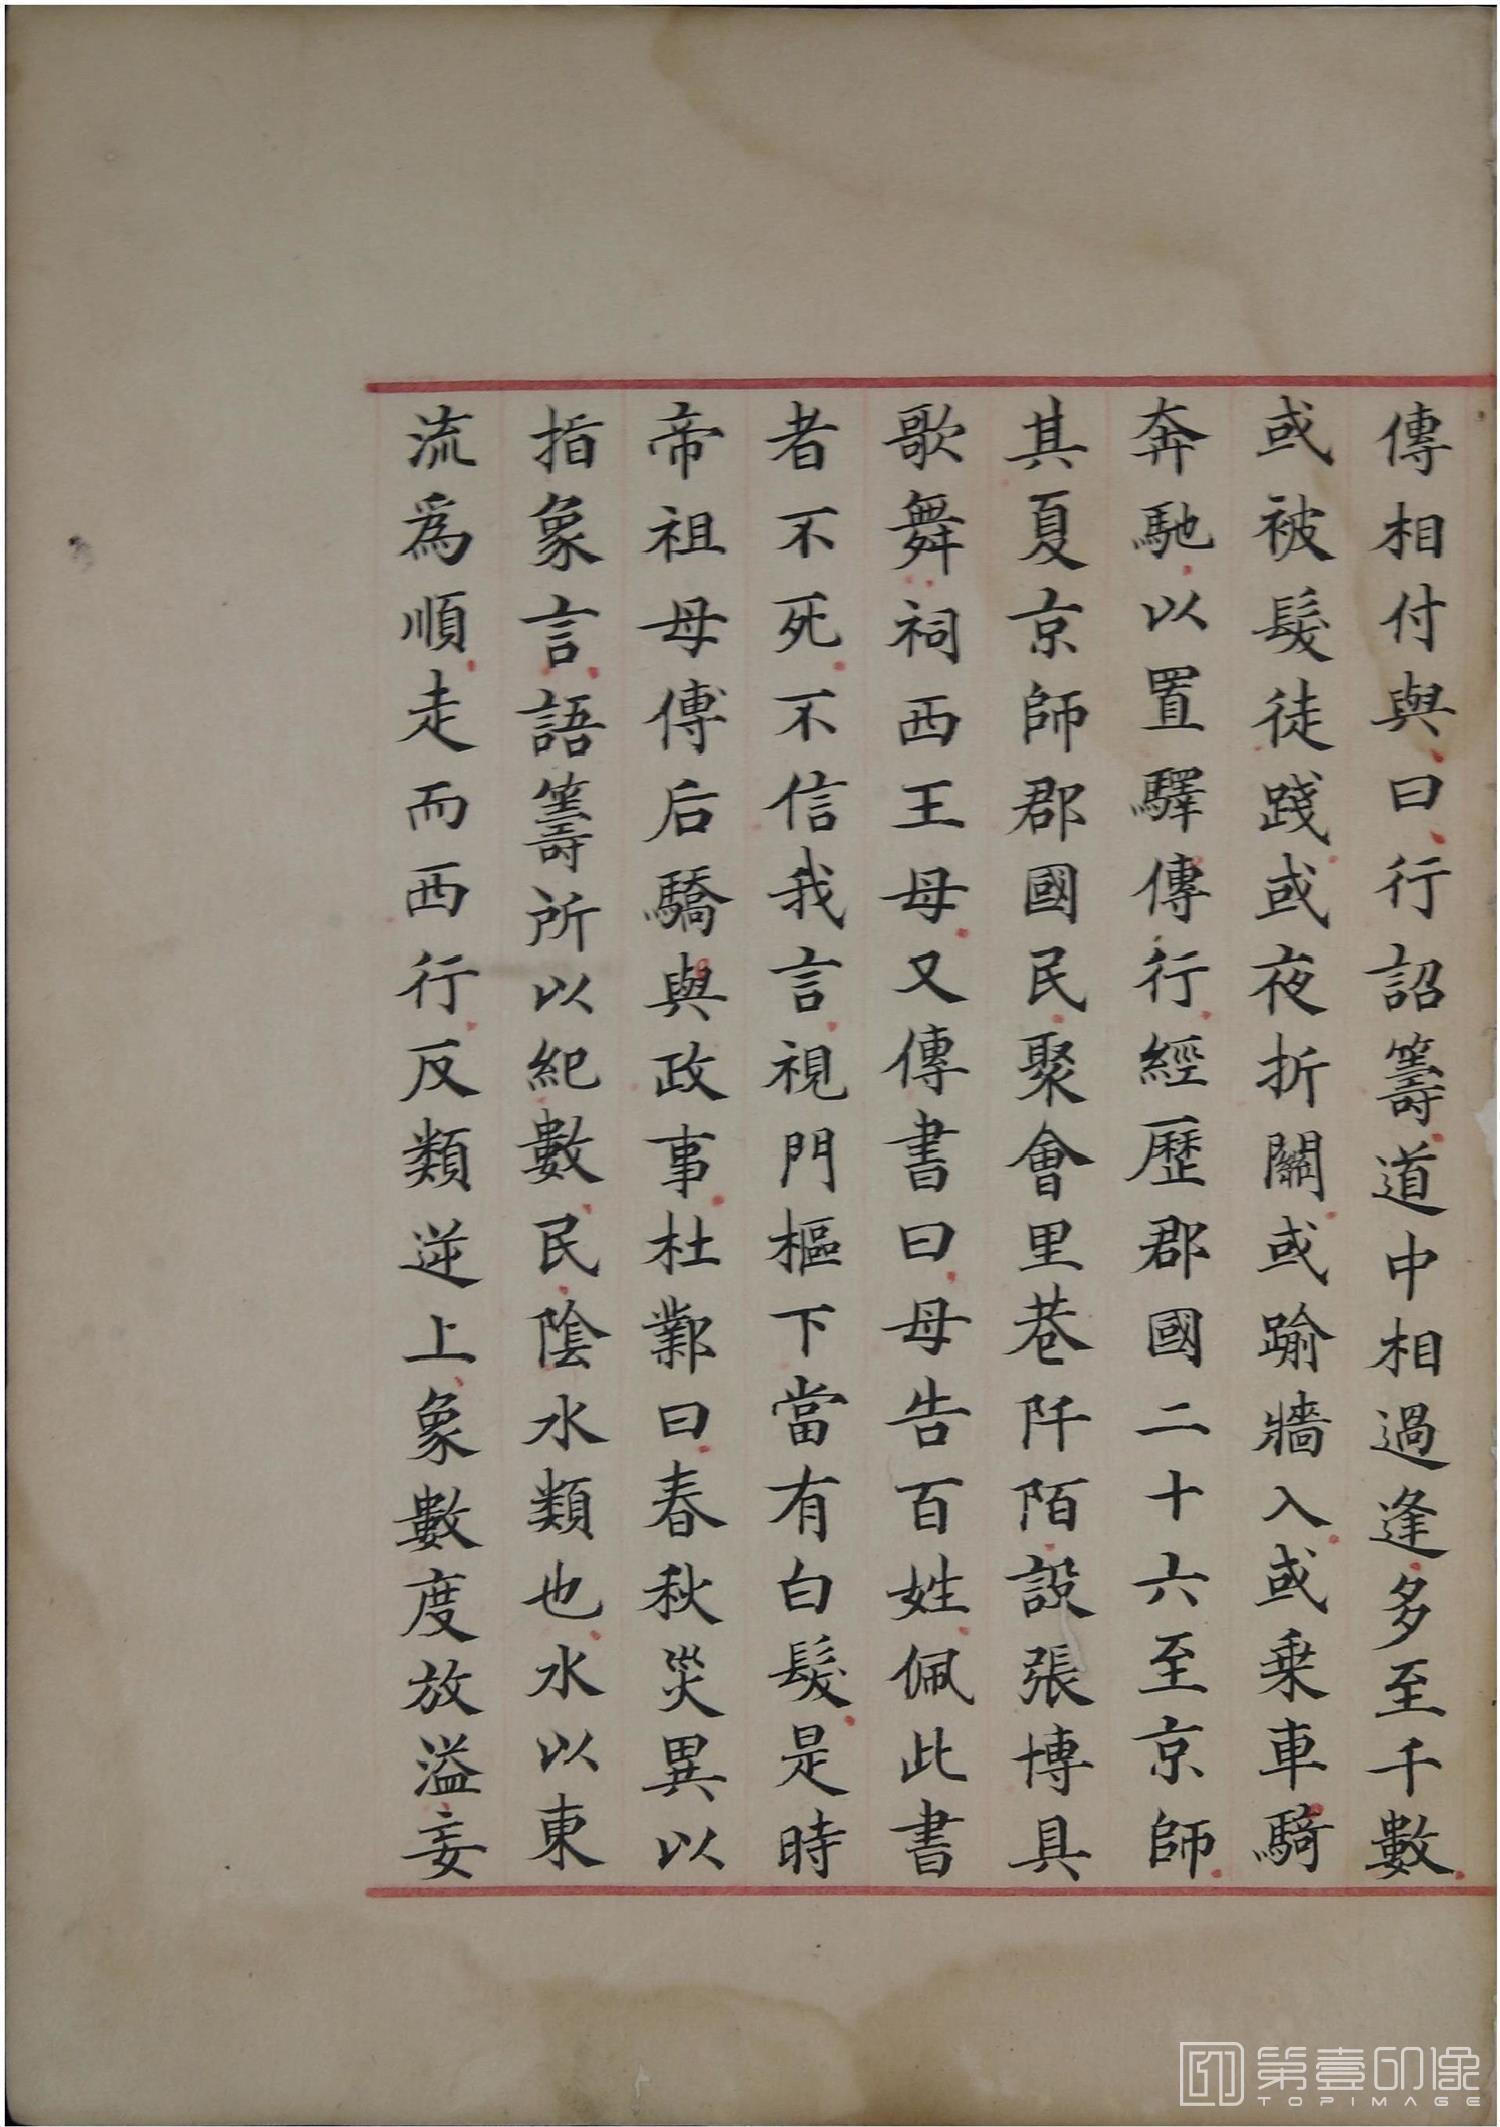 傳相付與曰行詔籌道中相過逢多至千數
或被髮徒踐或夜折關或踰牆入或乗車騎
奔馳以置驛傳行經歷郡國二十六至京師
其夏京師郡國民聚會里巷阡陌設張博具
歌舞祠西王母又傳書曰母告百姓佩此書
者不死不信我言視門樞下當有白髮是時
帝祖母傅后驕與政事杜鄴曰春秋災異以
指象言語籌所以紀數民陰水類也水以東
流爲順走而西行反類逆上象數度放溢妄
第壹印像
TOPIMAGE